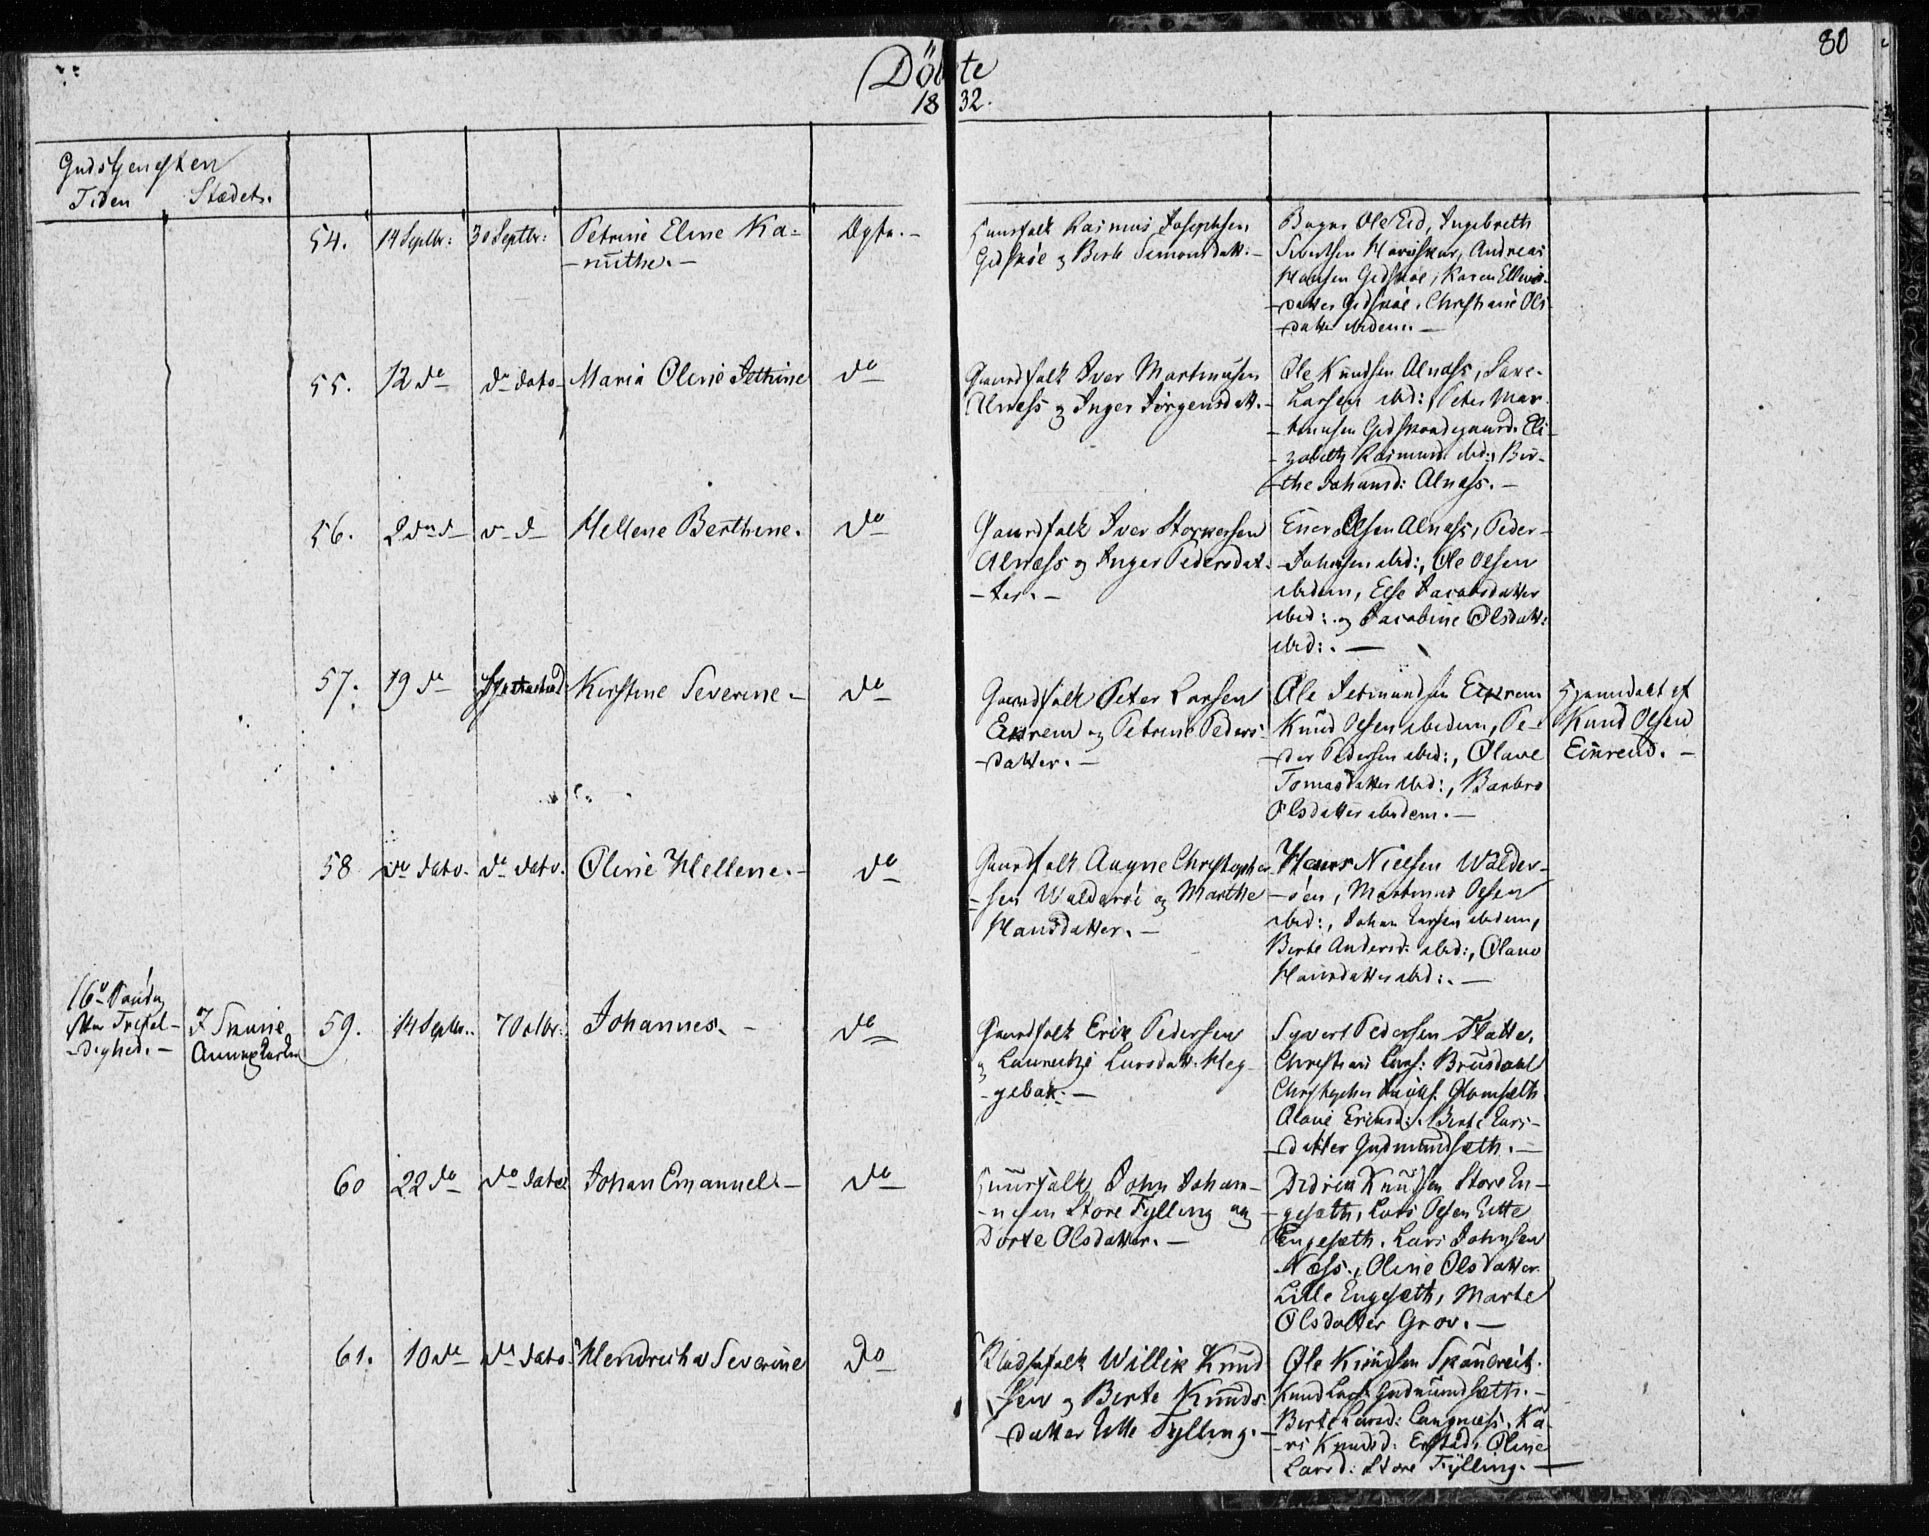 80
Döbte
1832.
Gudstjenesten
Tiden Stædet.
54. 14 Septbr: 30 Septbr: Petrine Eline Ka-
-nuthe.- Ægte.-
Huusfolk Rasmus Josephsen
Gidskøe og Berte Simonsdatt:-
Bager Ole Eid, Ingebreth
Sivertsen, Andreas
Hansen Gidskøe, Karen Ellevs-
-datter Gidskøe, Christiane Ols-
-datter ibidem.-
55. 12 do do dato Maria Oline Jethine do
Gaardfolk Iver Martinusen
Alnæss og Inger Jørgensdatt.-
Ole Knudsen Alnæss, Lars
Larsen ibid:, Peter Mar-
-tinusen Gidskeodegaard, Eli-
-zabeth Rasmusd: ibid:, Ber-
-the Johansd: Alnæss.-
56. 2den do do d Hellene Berthine. do
Gaardfolk Iver Storkersen
Alnæss og Inger Pedersdat-
-ter.-
Ener Olsen Alnæss, Peder
Johnsen ibid:, Ole Olsen
ibidem, Else Jacobsdatter
ibid: og Jacobine Olsdatt:
ibid:.-
57. 19 do Kirstine Severine- do
Gaardfolk Peter Larsen
Eckrem og Petrine Peders-
-datter.-
Ole Jetmundsen Eckrem
Knud Olsen ibidem, Pe-
-der Pedersen ibid:, Olave
Tomasdatter ibid:, Barbro
Olsdatter ibidem.-
Hjemmedøbt af
Knud Olsen
Eckrem.-
58 do dato. do dato. Oline Hellene.- do
Gaardfolk Aagne Christopher-
-sen Walderøe og Marthe
Hansdatter.-
Hans Nielsen Walder-
-øen, Martinus Olsen
ibid:, Johan Larsen ibidem,
Berte Andersd: ibid:, Olave
Hansdatter ibid:.-
16de Søndag
efter Trefol-
-dighed.- I Skouie
Annexkirke
59. 14 Septbr. 7 Octbr: Johannes.- do
Gaardfolk Erik Pedersen
og Lauritze Larsdatt: Heg-
-gebak.-
Syvert Pedersen Flatte,
Christian Lars: Brusdahl
Christopher Glomsæth
Olave Eriksd:, Berte Lars-
-datter Gudmundsæth.-
60 22 do do dato Johan Emanuel.- do
Huusfolk John Johan-
-nesen Store Fylling og
Dorte Olsdatter.-
Didrik Knudsen Store En-
-gesæth, Lars Olsen Litle
Engesæth, Lars Johnsen
Næss, Oline Olsdatter
Lille Engesæth, Marte
Olsdatter Grov.-
61. 10 do do dato Hendrikka Severine do
Pladsfolk Willik Knud-
-sen og Berte Knuds-
-datter Litle Fylling.-
Ole Knudsen Skoucreit.
Knud Lars: Gudmundsæth.-
Berte Larsd: Langnæss, Ka-
-ri Knudsd: Erstad, Oline
Larsd: Store Fylling.-